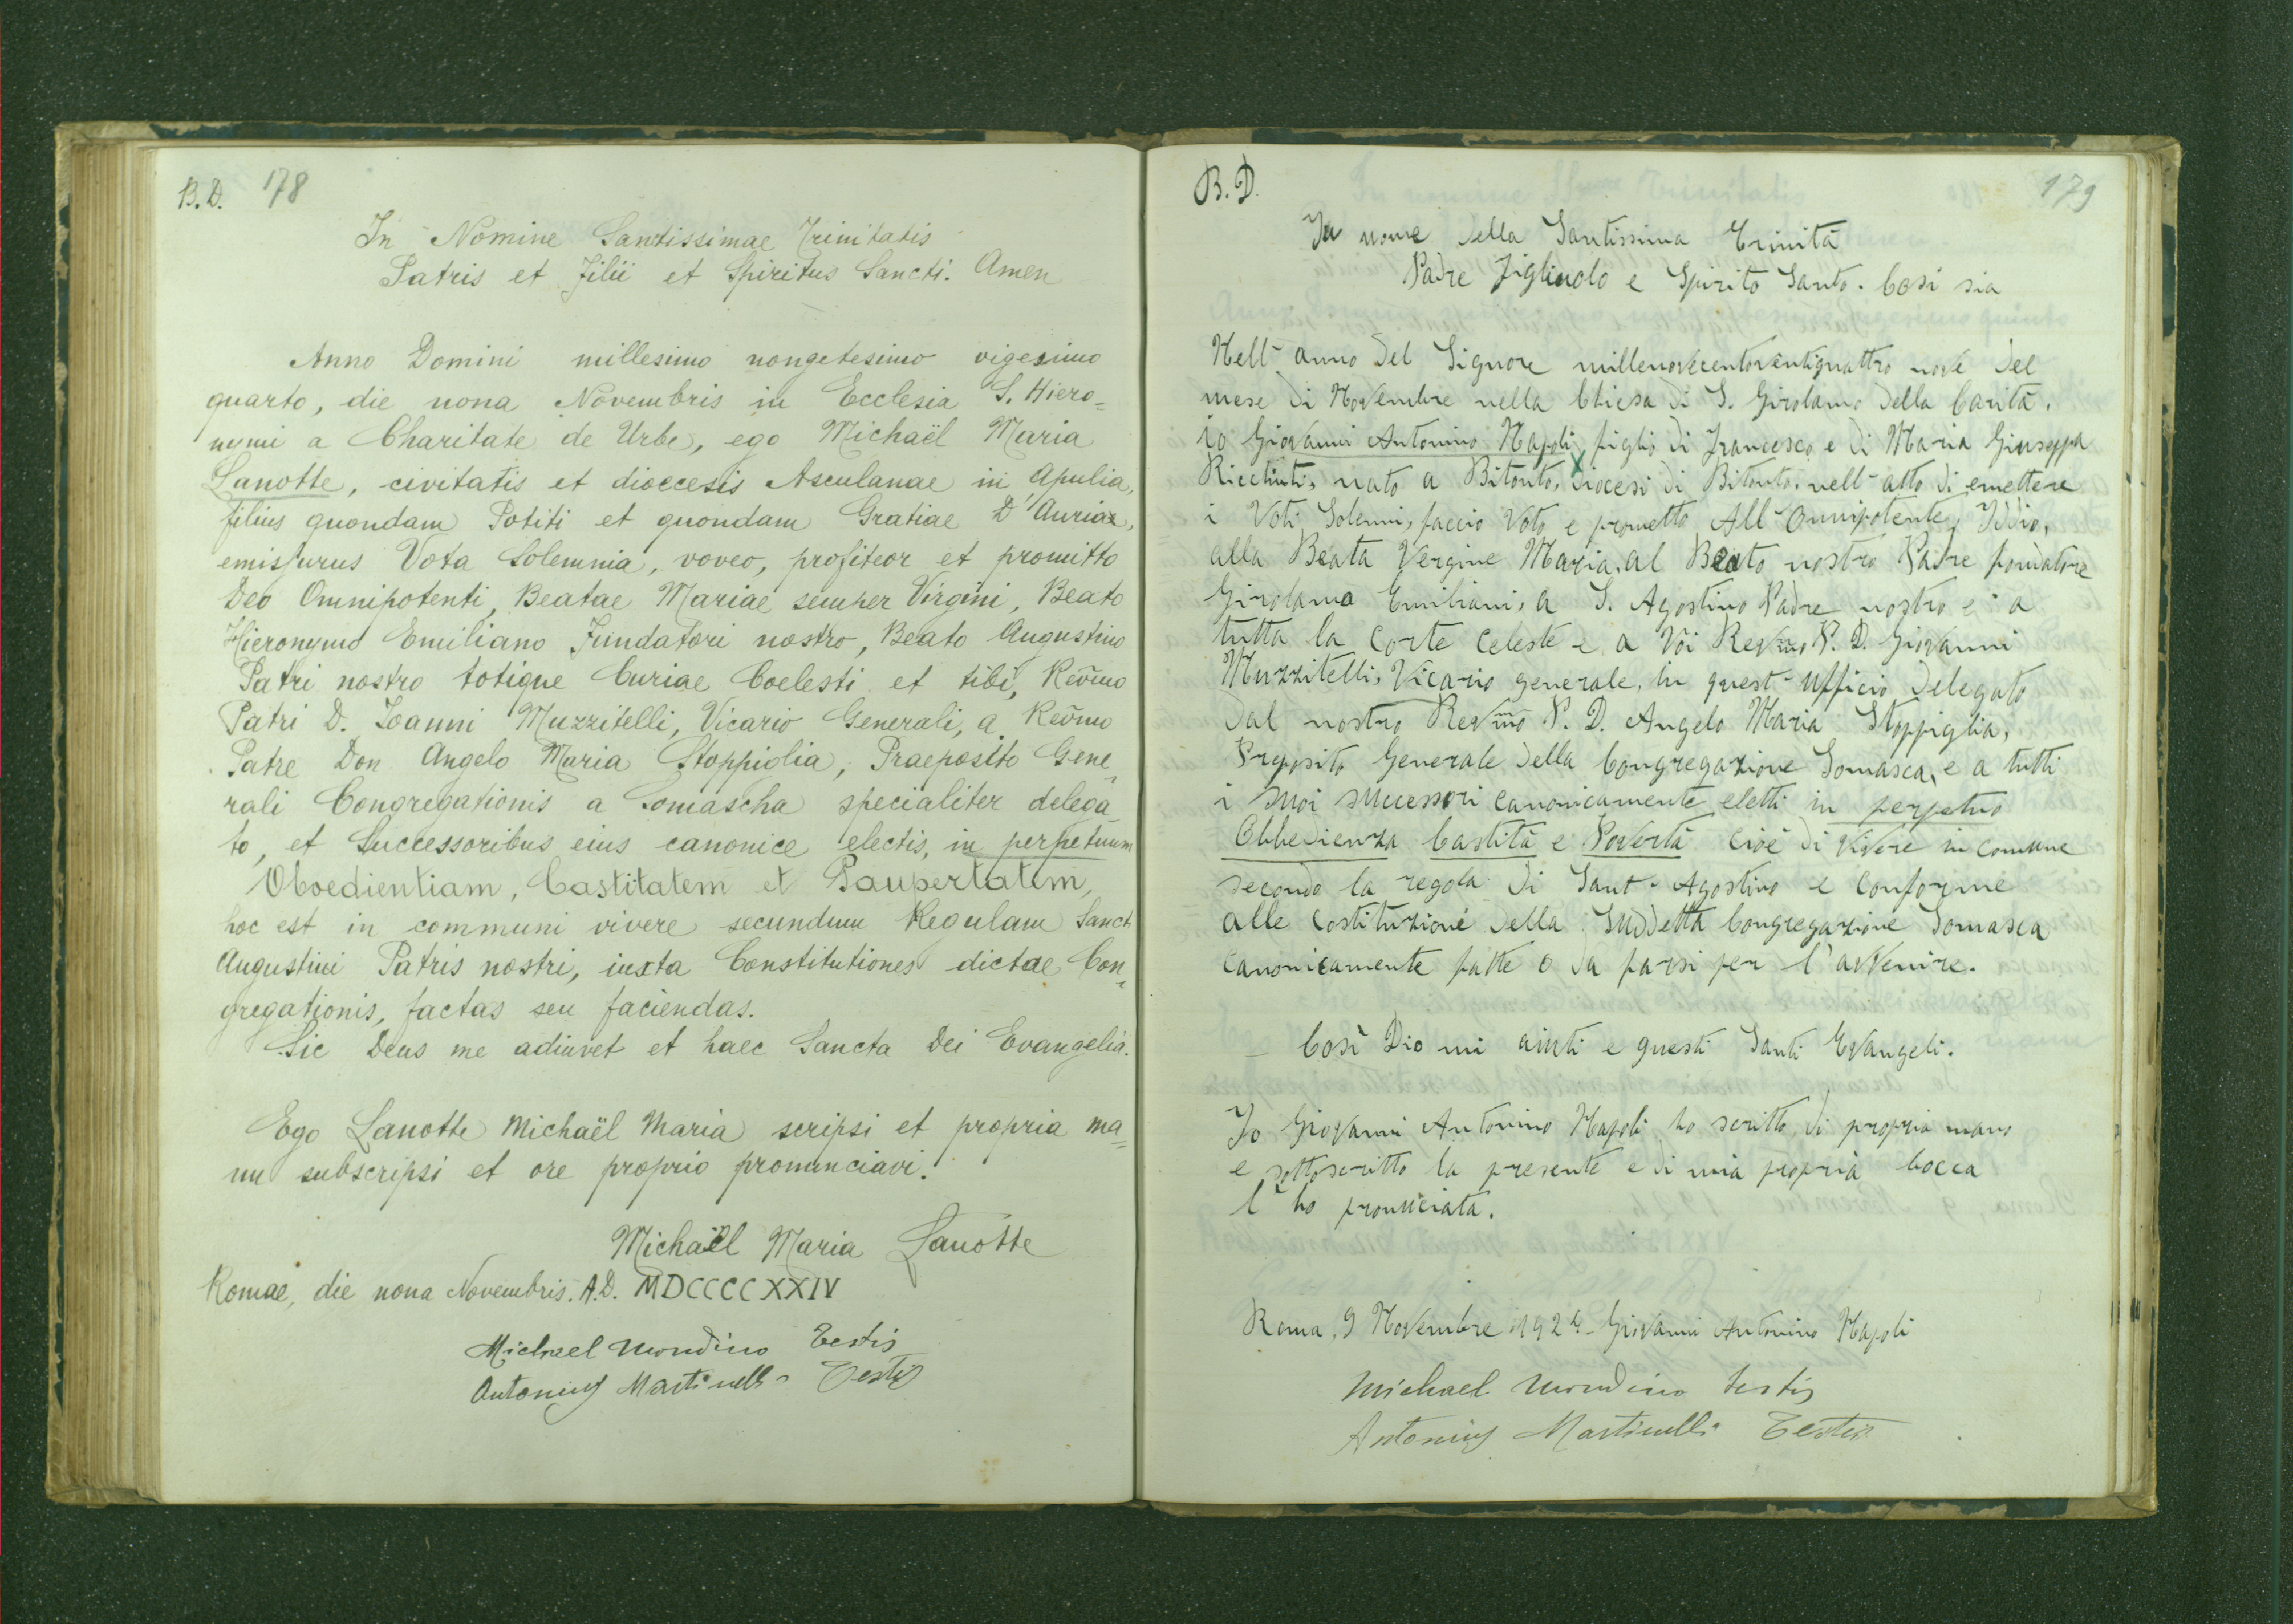 B. D. 178
In Nomine Sanctissimae Trinitatis
Patris et Filii et Spiritus Sancti. Amen
Anno Domini millesimo nongetesimo vigesimo
quarto, die nona Novembris in Ecclesia S. Hiero=
nymi a Charitate de Urbe, ego Michaël Maria
Lanotte, civitatis et dioecesis Asculanae in Apulia,
filius quondam Potiti et quondam Gratiae D'Auriae,
emissurus Vota Solemnia, voveo, profiteor et promitto
Deo Omnipotenti, Beatae Mariae semper Virgini, Beato
Hieronymo Emiliano Fundatori nostro, Beato Augustino
Patri nostro totique Curiae Coelesti et tibi, Rev̄mo
Patri D. Joanni Muzzitelli, Vicario Generali, a Rev̄mo
Patre Don Angelo Maria Stoppiglia, Praeposito Gene=
rali Congregationis a Somascha specialiter delega=
to, et Successoribus eius canonice electis, in perpetuum
Oboedientiam, Castitatem et Paupertatem,
hoc est in communi vivere secundum Regulam Sancti
Augustini Patris nostri, iuxta Constitutiones dictae Con=
gregationis, factas seu faciendas.
Sic Deus me adiuvet et haec Sancta Dei Evangelia.
Ego Lanotte Michaël Maria scripsi et propria ma=
nu subscripsi et ore proprio pronunciavi.
Michaël Maria Lanotte
Romae, die nona Novembris. A.D. MDCCCCXXIV
Michael Mondino Testis
Antonius Martinelli Testis
B. D. 179
In nome della Santissima Trinità
Padre Figliuolo e Spirito Santo. Così sia
Nell'anno del Signore millenovecentoventiquattro nove del
mese di Novembre nella Chiesa di S. Girolamo della Carità.
io Giovanni Antonino Napoli figlio di Francesco e di Maria Giuseppa
Ricchiuti, nato a Bitonto, diocesi di Bitonto, nell'atto di emettere
i Voti Solenni, faccio Voto e prometto All'Onnipotente Iddio,
alla Beata Vergine Maria, al Beato nostro Padre fondatore
Girolamo Emiliani, a S. Agostino Padre nostro e a
tutta la Corte Celeste e a Voi Revmo P. D. Giovanni
Muzzitelli, Vicario generale, in quest'ufficio delegato
dal nostro Revmo P. D. Angelo Maria Stoppiglia,
Preposito Generale della Congregazione Somasca, e a tutti
i suoi successori canonicamente eletti in perpetuo
Obbedienza Castità e Povertà cioè di vivere in comune
secondo la regola di Sant'Agostino e conforme
alle Costituzione della Suddetta Congregazione Somasca
canonicamente fatte o da farsi per l'avvenire.
Così Dio mi aiuti e questi Santi Evangeli.
Io Giovanni Antonino Napoli ho scritto di propria mano
e sottoscritto la presente e di mia propria bocca
l'ho pronunciata.
Roma, 9 Novembre 1924 - Giovanni Antonino Napoli
Michael Mondino testis
Antonius Martinelli Testis